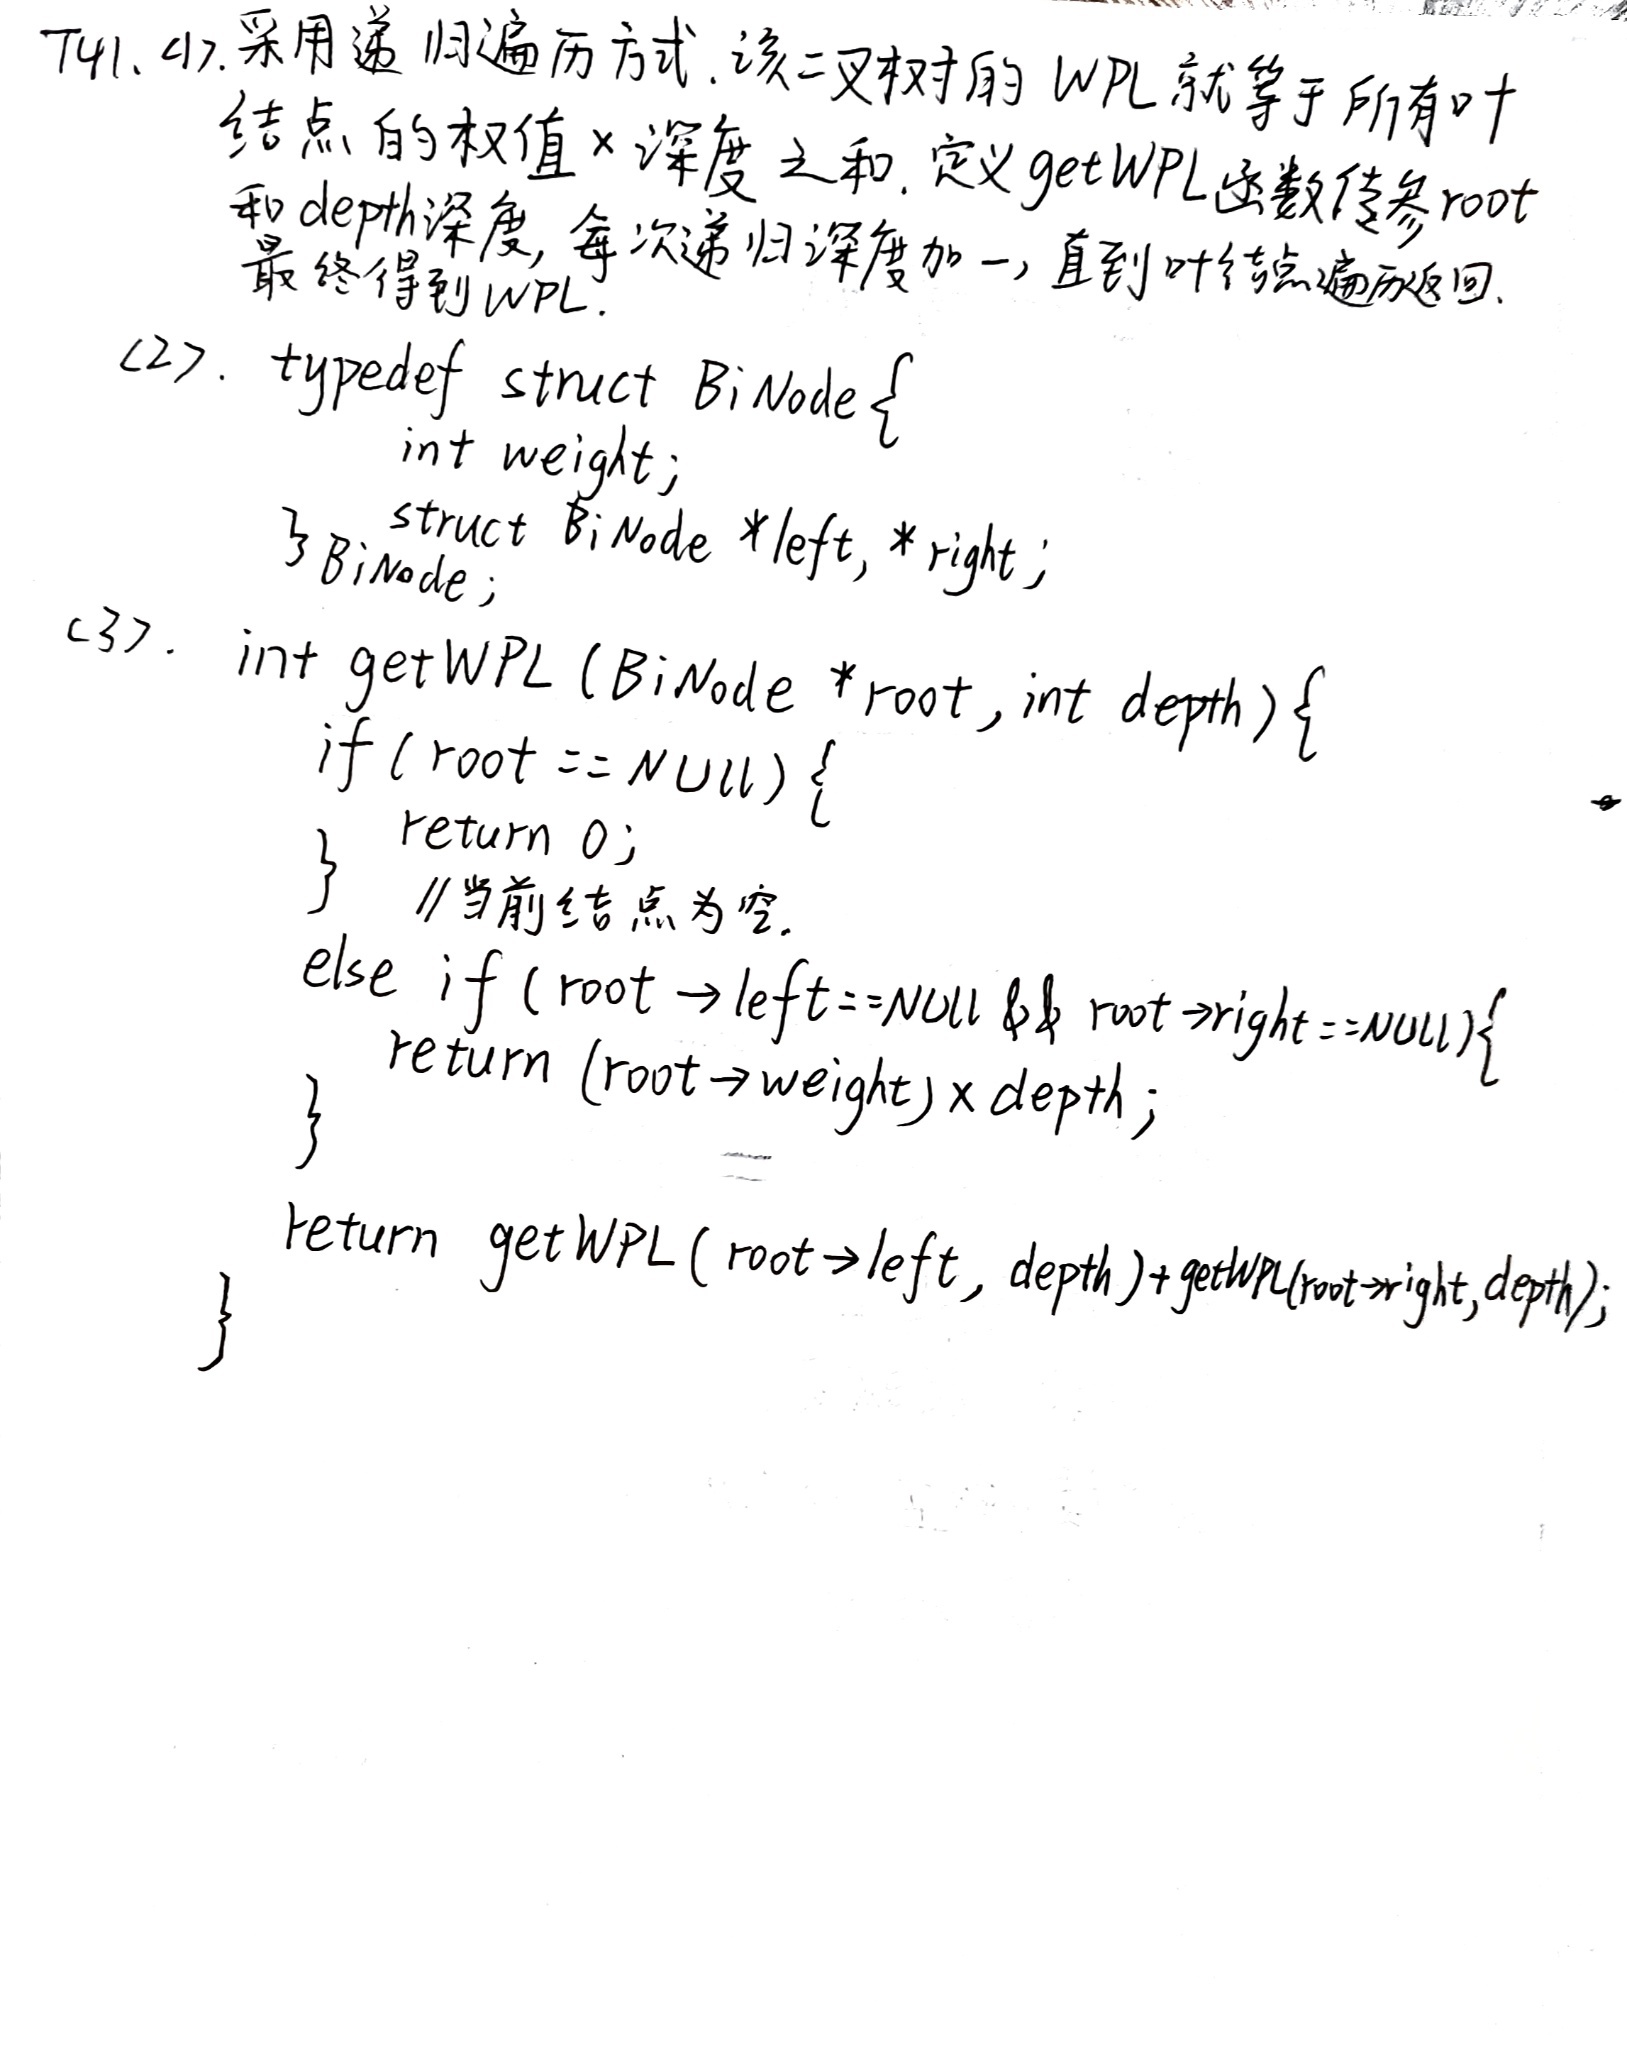 T41、<1>.采用递归遍历方式.该二叉树的WPL就等于所有叶
结点的权值×深度之和.定义getWPL函数传参root
和depth深度,每次递归深度加一,直到叶结点遍历返回.
最终得到WPL.
<2>. typedef struct BiNode{
int weight;
struct BiNode *left, *right;
}BiNode;
<3>. int getWPL(BiNode *root, int depth){
if(root==NULL){
return 0;
} //当前结点为空.
else if(root→left==NULL && root→right==NULL){
return (root→weight)×depth;
}
return getWPL(root→left, depth)+getWPL(root→right,depth);
}